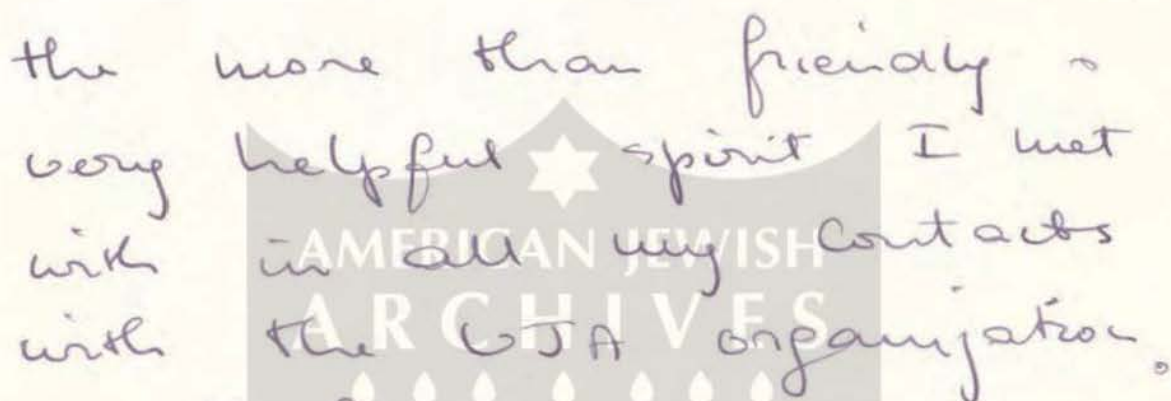 the more than friendly &
very helpful spirit I met
with in all my contacts
with the UJA organization.
AMERICAN JEWISH
ARCHIVES